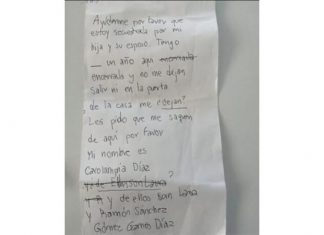 Ayúdenme por favor que
estoy secuestrada por mi
hija y su esposo. Tengo
_ un año aquí encerrada
encerrada y no me dejan
salir ni en la puerta
de la casa me dejan?
Les pido que me saquen
de aquí por favor
Mi nombre es
Díaz
y de ?
y de ellos son
y Ramón Sánchez
Gómez Díaz